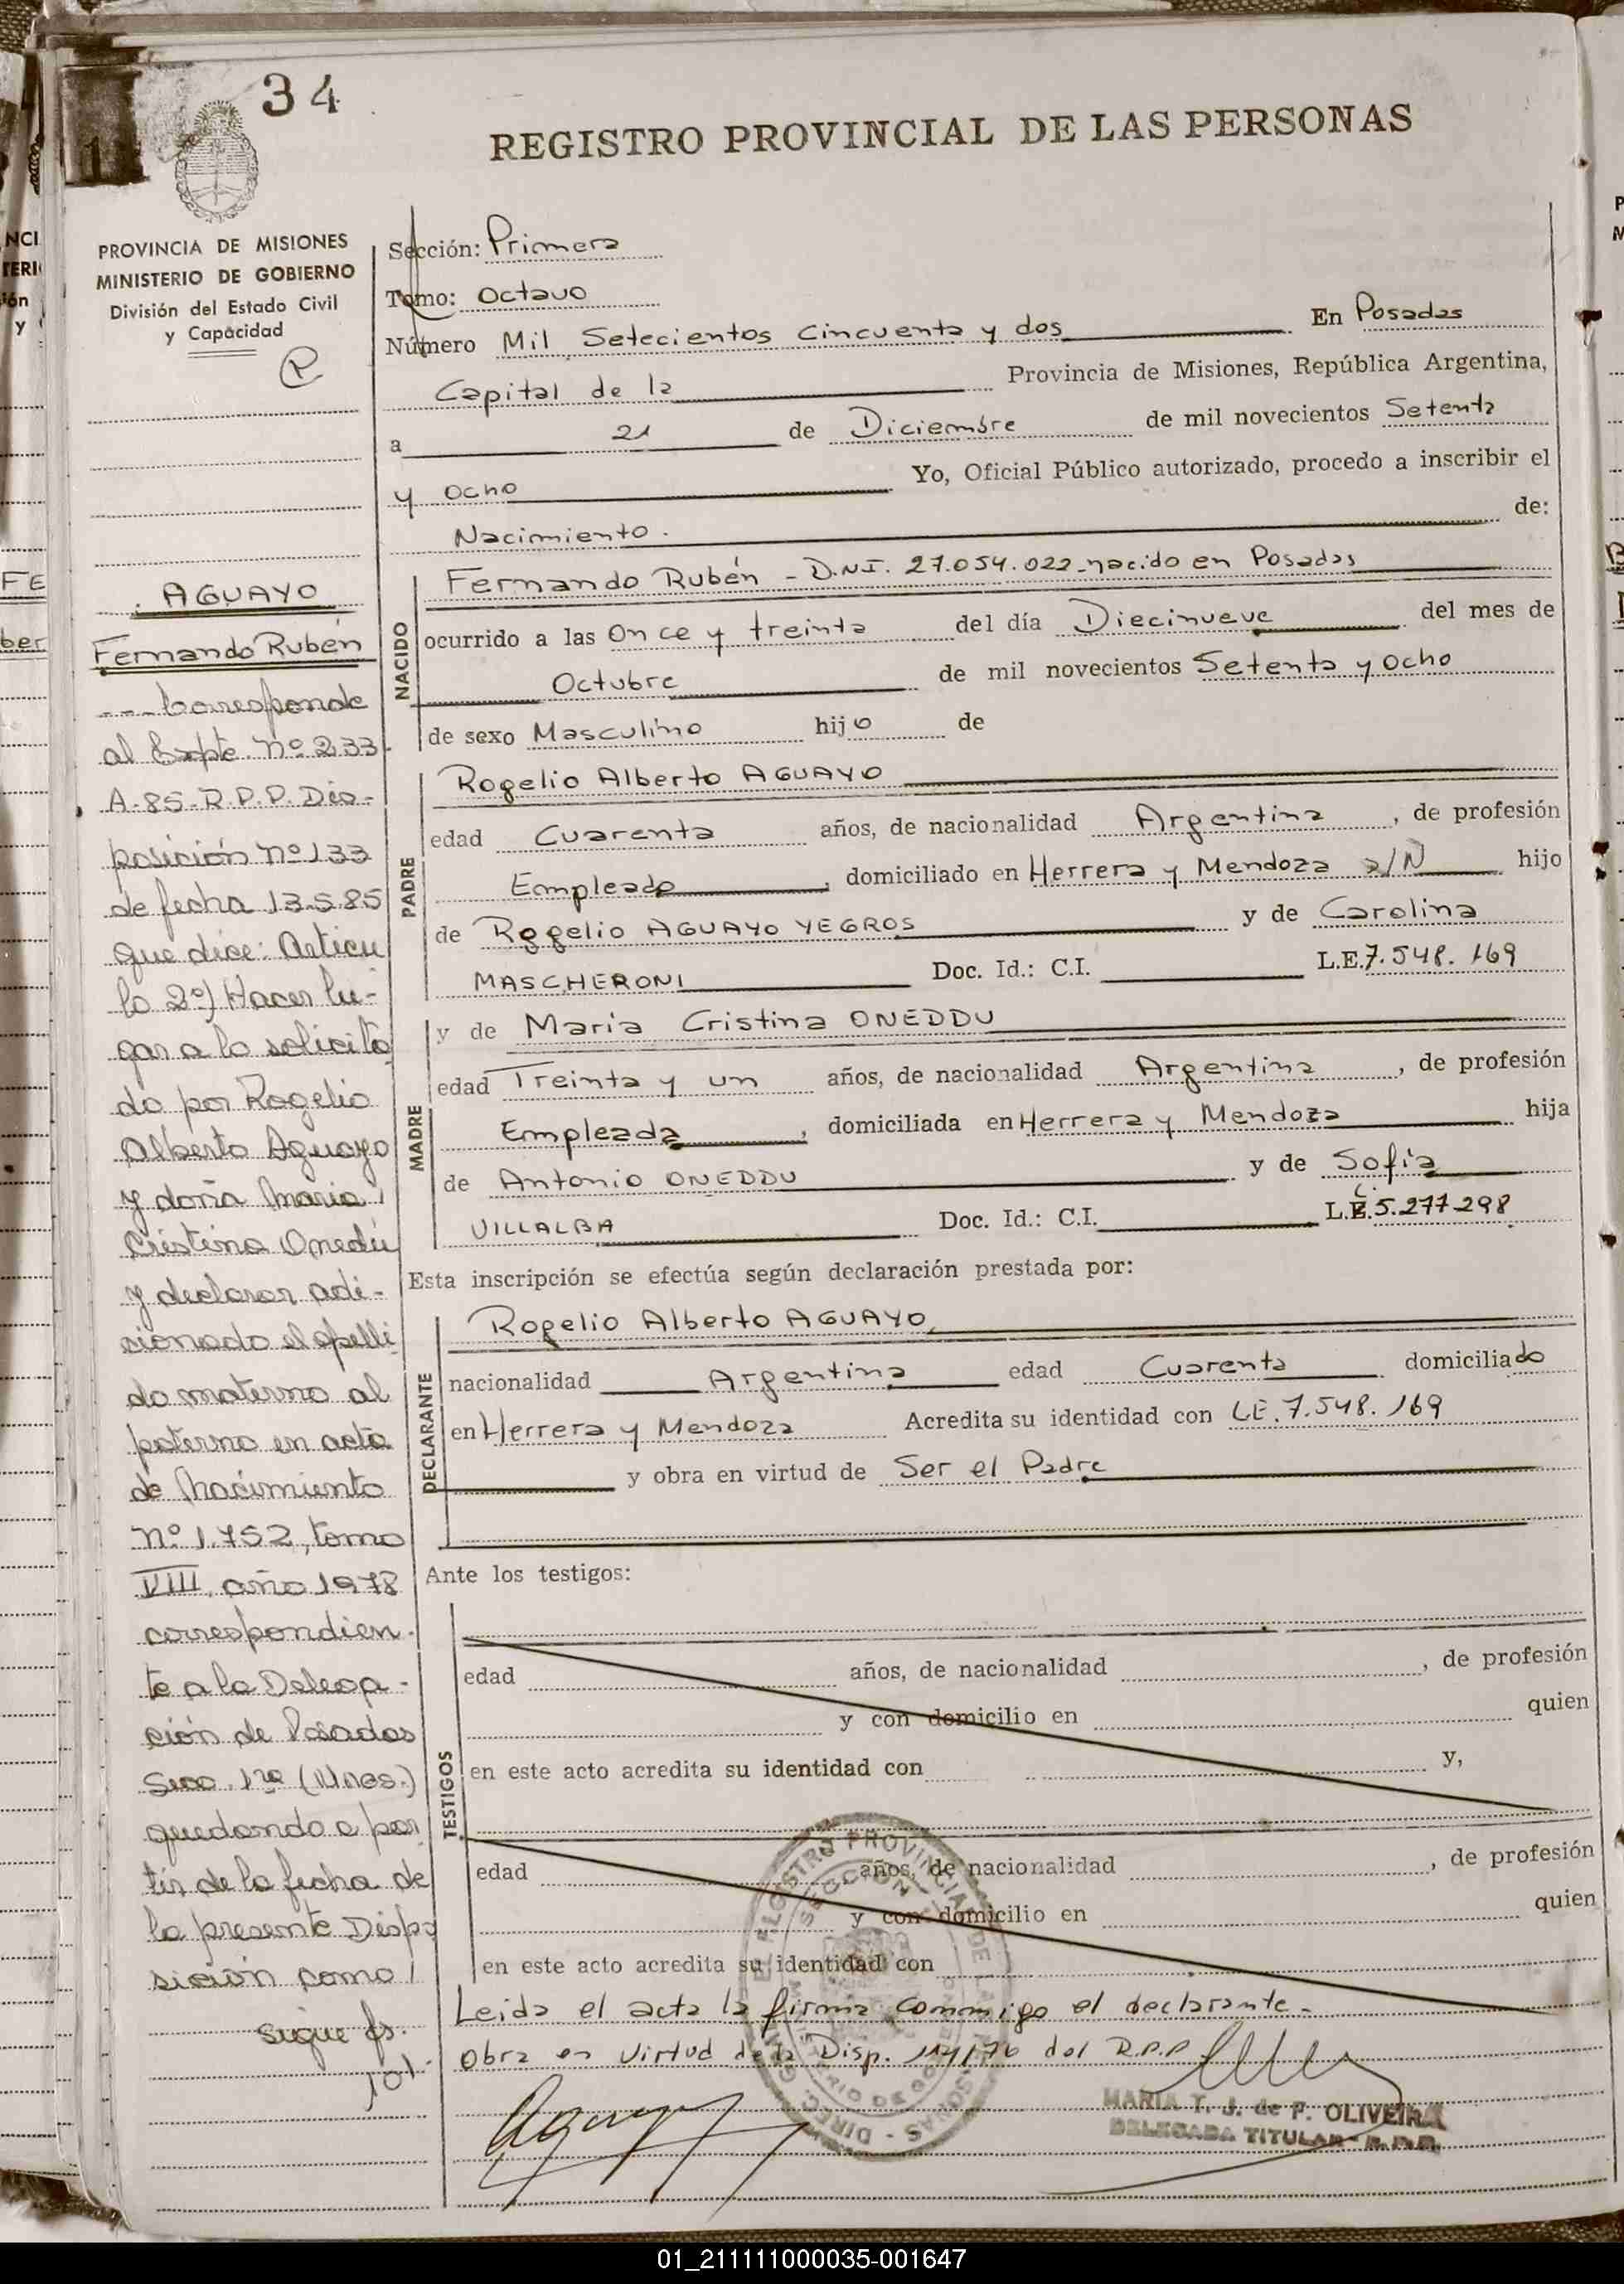 34
1
REGISTRO PROVINCIAL DE LAS PERSONAS
PROVINCIA DE MISIONES
MINISTERIO DE GOBIERNO
División del Estado Civil
y Capacidad
Sección: Primera
Tomo: Octavo
Número Mil Setecientos Cincuenta y dos En Posadas
Capital de la Provincia de Misiones, República Argentina,
a 21 de Diciembre de mil novecientos Setenta
y ocho Yo, Oficial Público autorizado, procedo a inscribir el
Nacimiento. de:
NACIDO
Fernando Rubén - D.N.I. 27.054.022 nacido en Posadas
ocurrido a las Once y treinta del día Diecinueve del mes de
Octubre de mil novecientos Setenta y ocho
de sexo Masculino hijo de
PADRE
Rogelio Alberto AGUAYO
edad Cuarenta años, de nacionalidad Argentina, de profesión
Empleado, domiciliado en Herrera y Mendoza s/N hijo
de Rogelio AGUAYO YEGROS y de Carolina
MASCHERONI Doc. Id.: C.I. L.E. 7.548.169
MADRE
y de María Cristina ONEDDU
edad Treinta y un años, de nacionalidad Argentina, de profesión
Empleada, domiciliada en Herrera y Mendoza hija
de Antonio ONEDDU y de Sofía
VILLALBA Doc. Id.: C.I. L.C. 5.277-298
Esta inscripción se efectúa según declaración prestada por:
DECLARANTE
Rogelio Alberto AGUAYO
nacionalidad Argentina edad Cuarenta domiciliado
en Herrera y Mendoza Acredita su identidad con LE. 7.548.169
y obra en virtud de Ser el Padre
Ante los testigos:
TESTIGOS
edad años, de nacionalidad , de profesión
y con domicilio en quien
en este acto acredita su identidad con y,
edad años, de nacionalidad , de profesión
y con domicilio en quien
en este acto acredita su identidad con
Leida el acta la firma conmigo el declarante-
Obra en Virtud de la Disp. 114/76 del R.P.P
MARIA T. J. de P. OLIVEIRA
DELEGADA TITULAR - R.P.P.
AGUAYO
Fernando Rubén
--- Corresponde
al Expte. Nº 233
A-85-R.P.P. Dis-
posición nº 133
de fecha 13-5-85
que dice: Articu
lo 2º) Hacer lu-
gar a lo solicita
do por Rogelio
Alberto Aguayo
y doña Maria
Cristina Onedú
y declarar adi-
cionado el apelli
do materno al
paterno en acta
de Nacimiento
nº 1.752, tomo
VIII, año 1978
correspondien-
te a la Delega-
ción de Posadas
Secc. 1ra (Mnes.)
quedando a par
tir de la fecha de
la presente Dispo
sición como/
sigue fs.
101
01_211111000035-001647